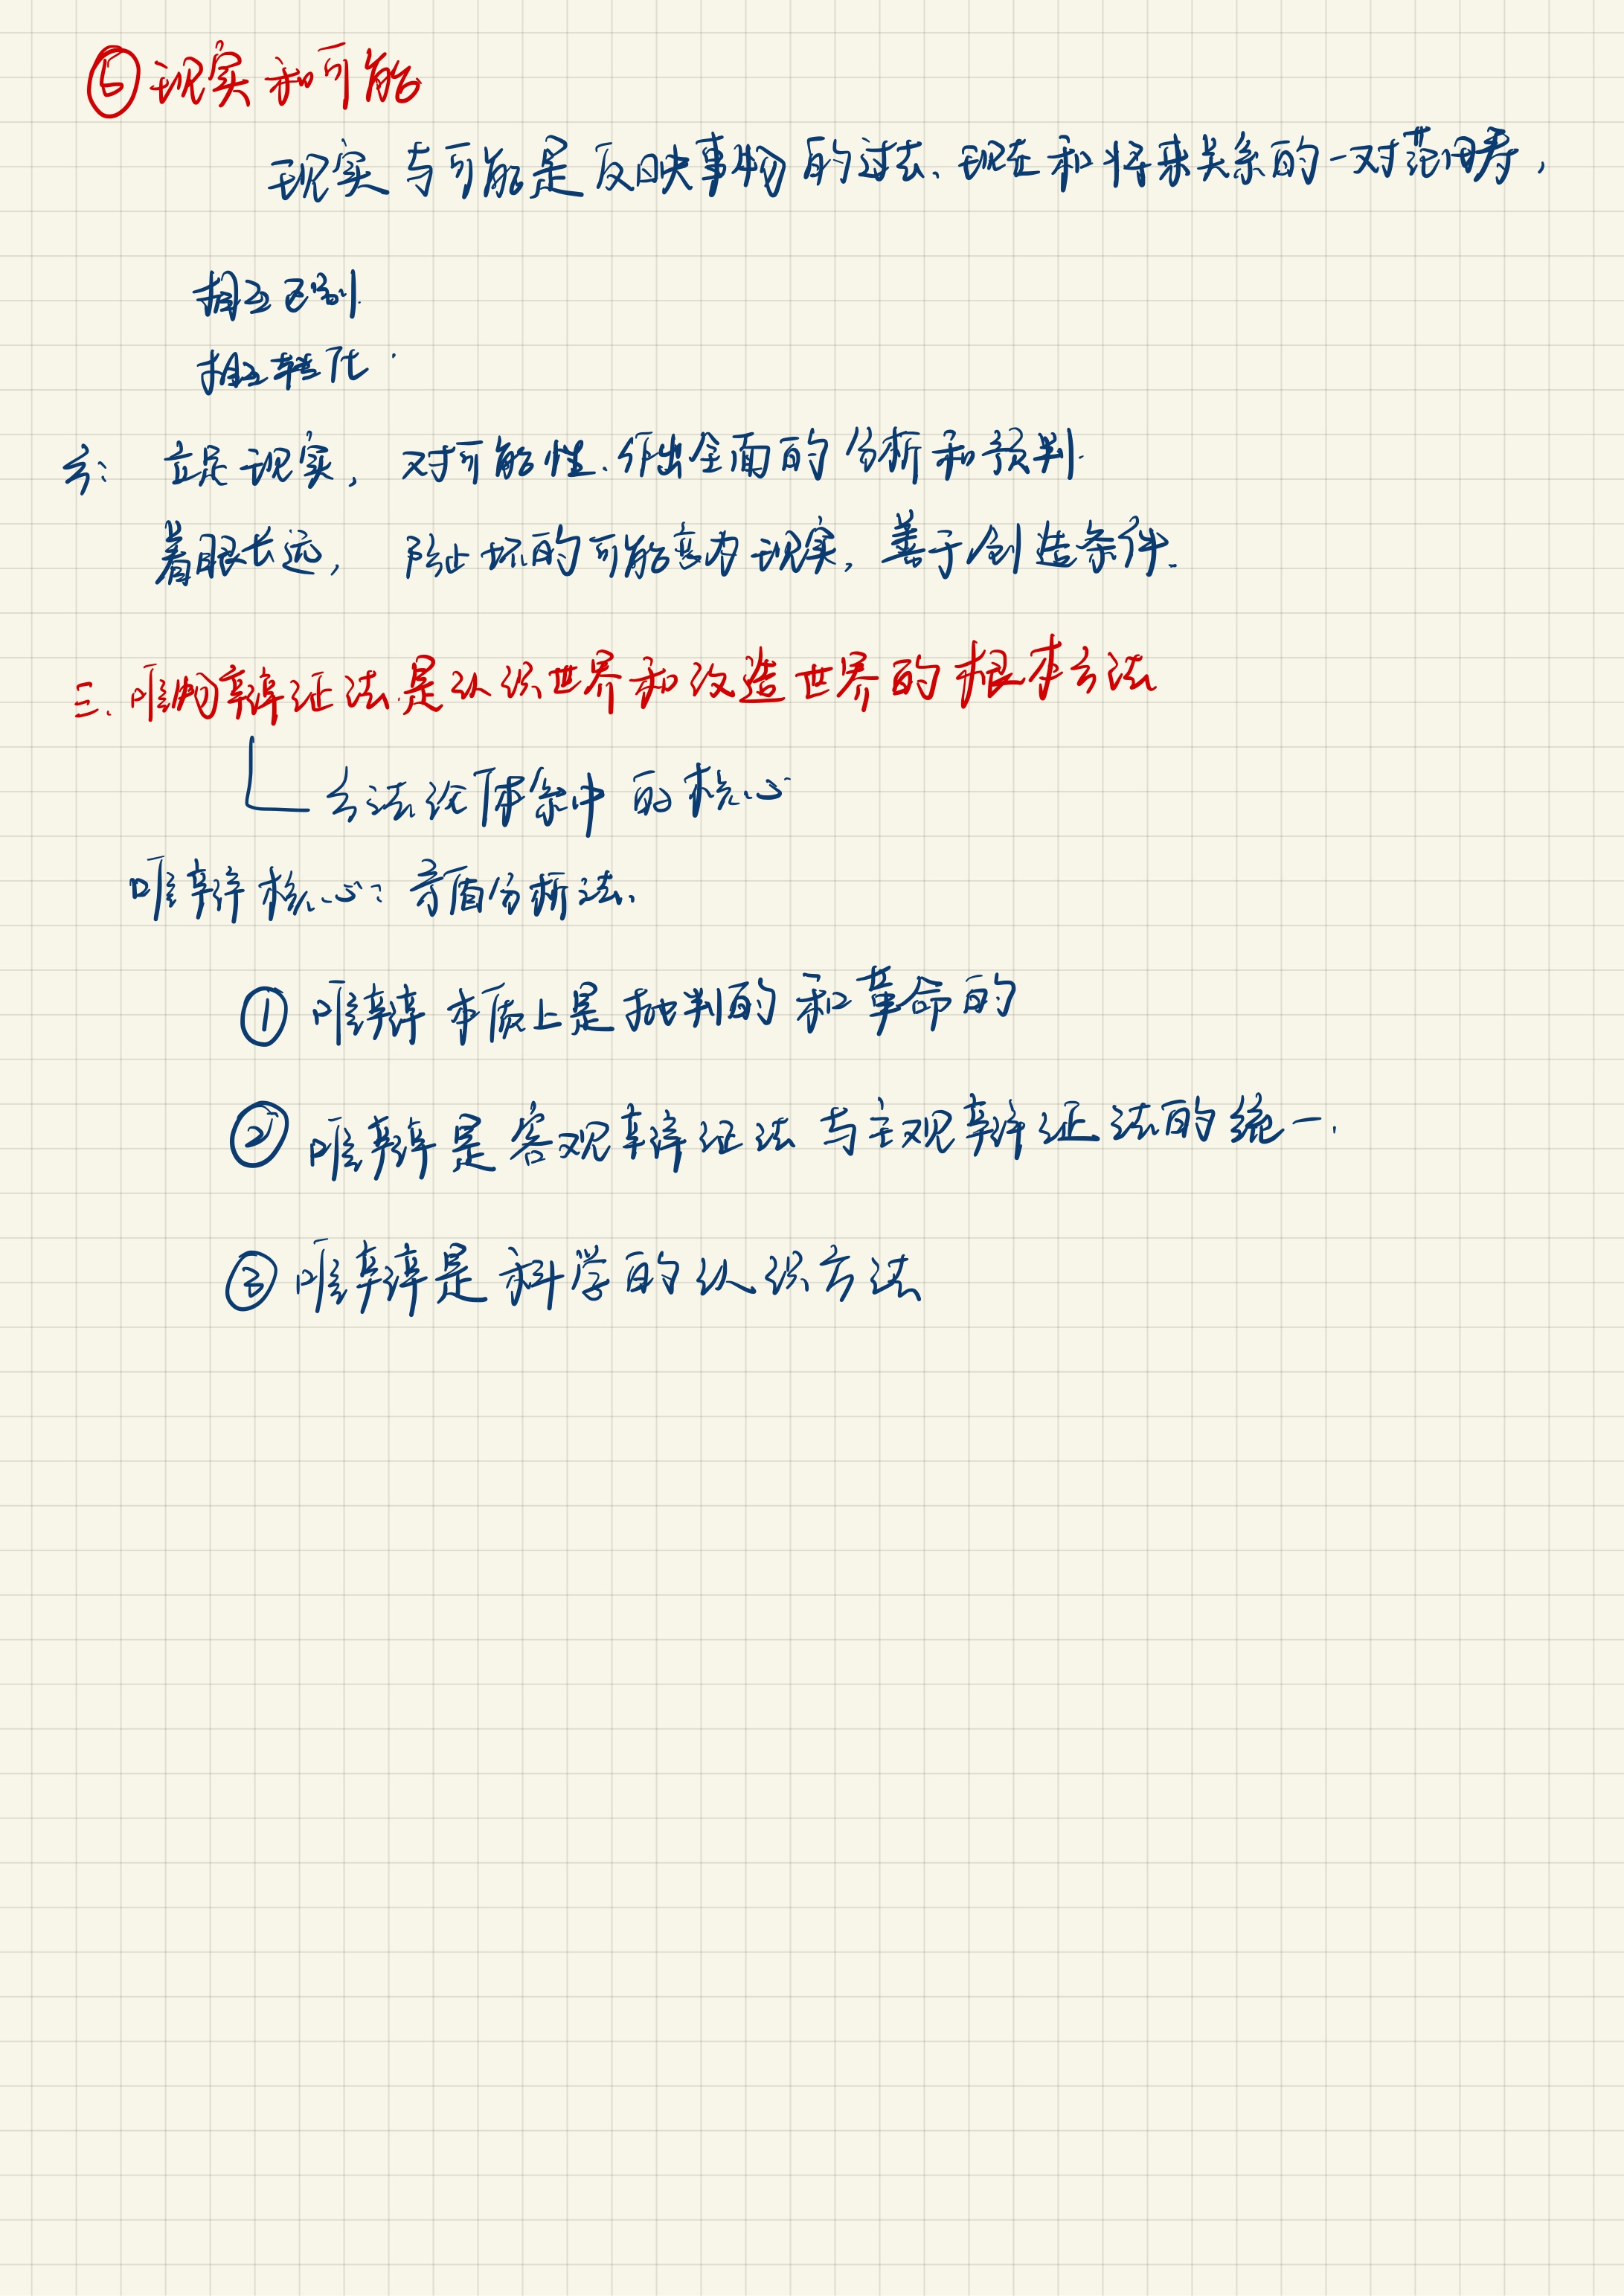 ⑤现实和可能
现实与可能是反映事物的过去、现在和将来关系的一对范畴,
相互区别.
相互转化.
方: 立足现实, 对可能性.作出全面的分析和预判.
着眼长远, 防止坏的可能变为现实, 善于创造条件.
三.唯物辩证法是认识世界和改造世界的根本方法
方法论体系中的核心
唯辩核心: 矛盾分析法.
① 唯辩本质上是批判的和革命的
② 唯辩是客观辩证法与主观辩证法的统一.
③ 唯辩是科学的认识方法